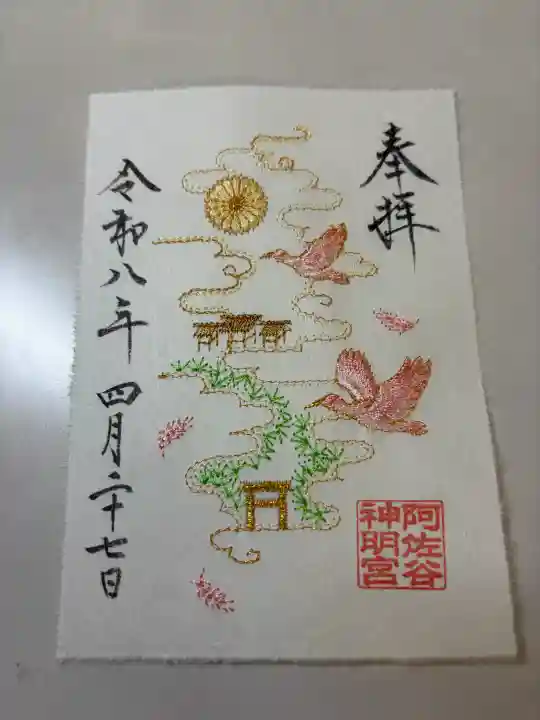 奉拝
令和八年 四月二十七日
阿佐谷
神明宮